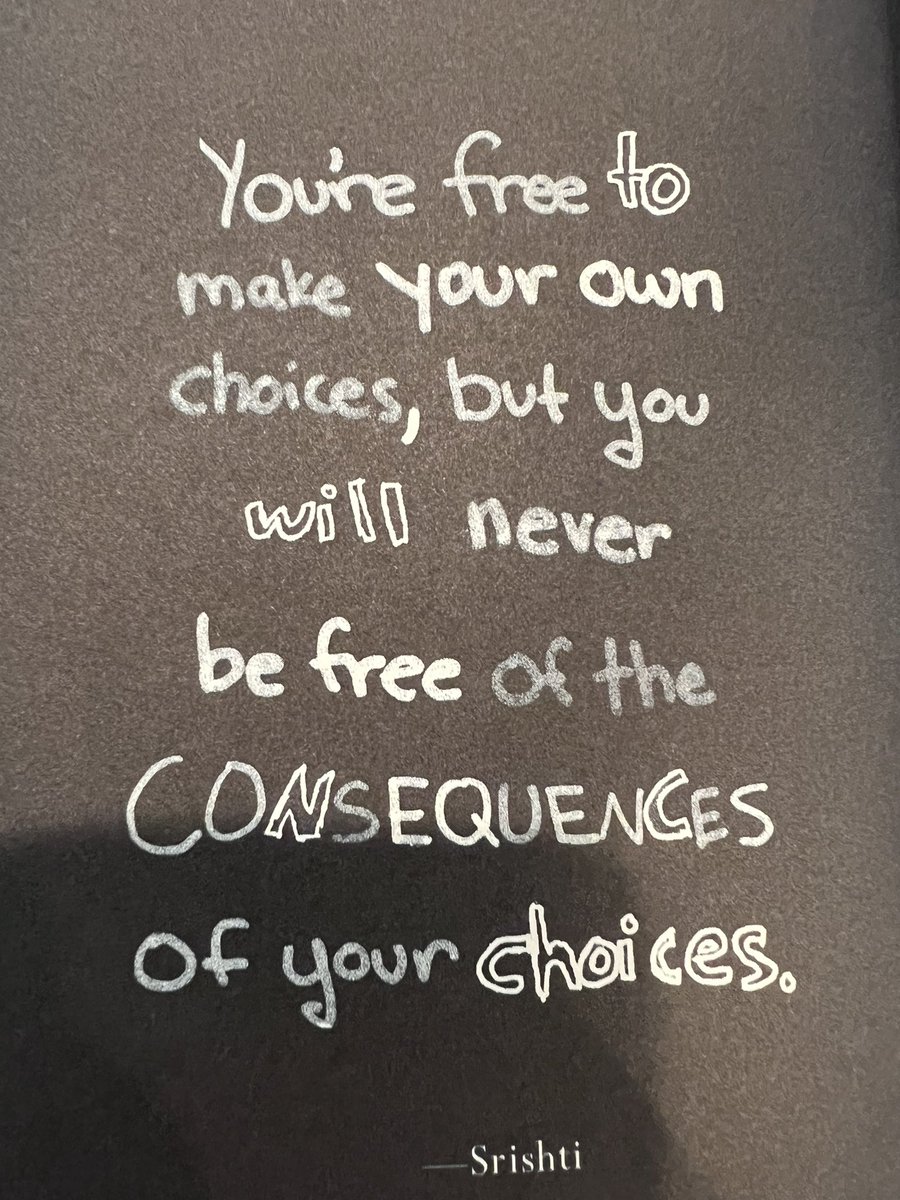 You're free to
make your own
choices, but you
will never
be free of the
CONSEQUENCES
of your choices.
—Srishti